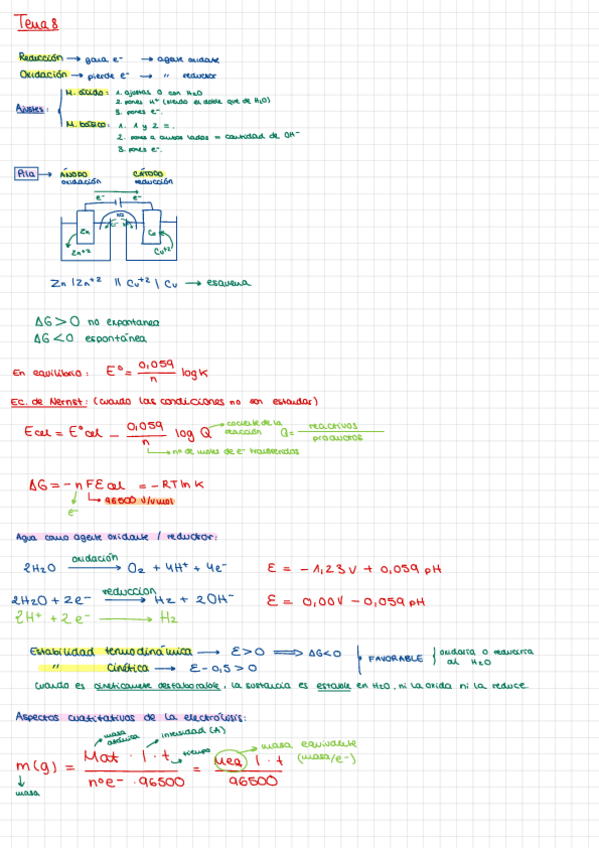 Tema 8
Reducción → gana e⁻ → agente oxidante
Oxidación → pierde e⁻ → " reductor
Ajustes:
M. ácido: 1. ajustas O con H₂O
2. pones H⁺ (siendo el doble que de H₂O)
3. pones e⁻.
M. básico: 1. 1 y 2 =.
2. pones a ambos lados = cantidad de OH⁻
3. pones e⁻.
Pila → ÁNODO CÁTODO
oxidación reducción
e⁻ e⁻
Zn Cu
Zn⁺² Cu⁺²
Zn | Zn⁺² || Cu⁺² | Cu → esquema
ΔG > 0 no espontanea
ΔG < 0 espontánea
En equilibrio: E° = 0,059/n log K
Ec. de Nernst: (cuando las condiciones no son estandar)
Ecel = E°cel − 0,059/n log Q → cociente de la reacción Q = reactivos/productos
→ nº de moles de e⁻ transferidos
ΔG = −n F Ecel = −RT ln K
e⁻ → 96500 V/v mol
Agua como agente oxidante / reductor:
2H₂O oxidación → O₂ + 4H⁺ + 4e⁻ E = −1,23 V + 0,059 pH
2H₂O + 2e⁻ reducción → H₂ + 2OH⁻ E = 0,00 V − 0,059 pH
2H⁺ + 2e⁻ → H₂
Estabilidad termodinámica → E > 0 ⟹ ΔG < 0 | FAVORABLE oxidaría o reduciría al H₂O
" Cinética → E − 0,5 > 0
cuando es cinéticamente desfavorable, la sustancia es estable en H₂O, ni la oxida ni la reduce.
Aspectos cuatitativos de la electrólisis:
masa atómica intensidad (A) tiempo masa equivalente (masa/e⁻)
m(g) = Mat · I · t / nº e⁻ · 96500 = Meq I · t / 96500
masa